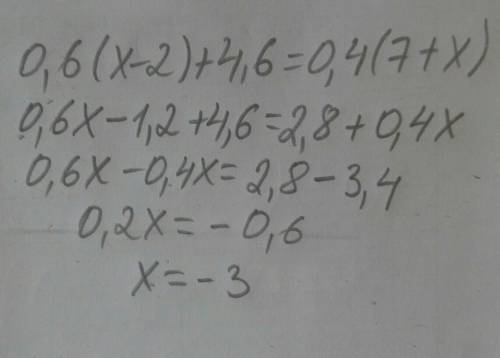 0,6(x-2)+4,6=0,4(7+x)
0,6x-1,2+4,6=2,8+0,4x
0,6x-0,4x=2,8-3,4
0,2x=-0,6
x=-3